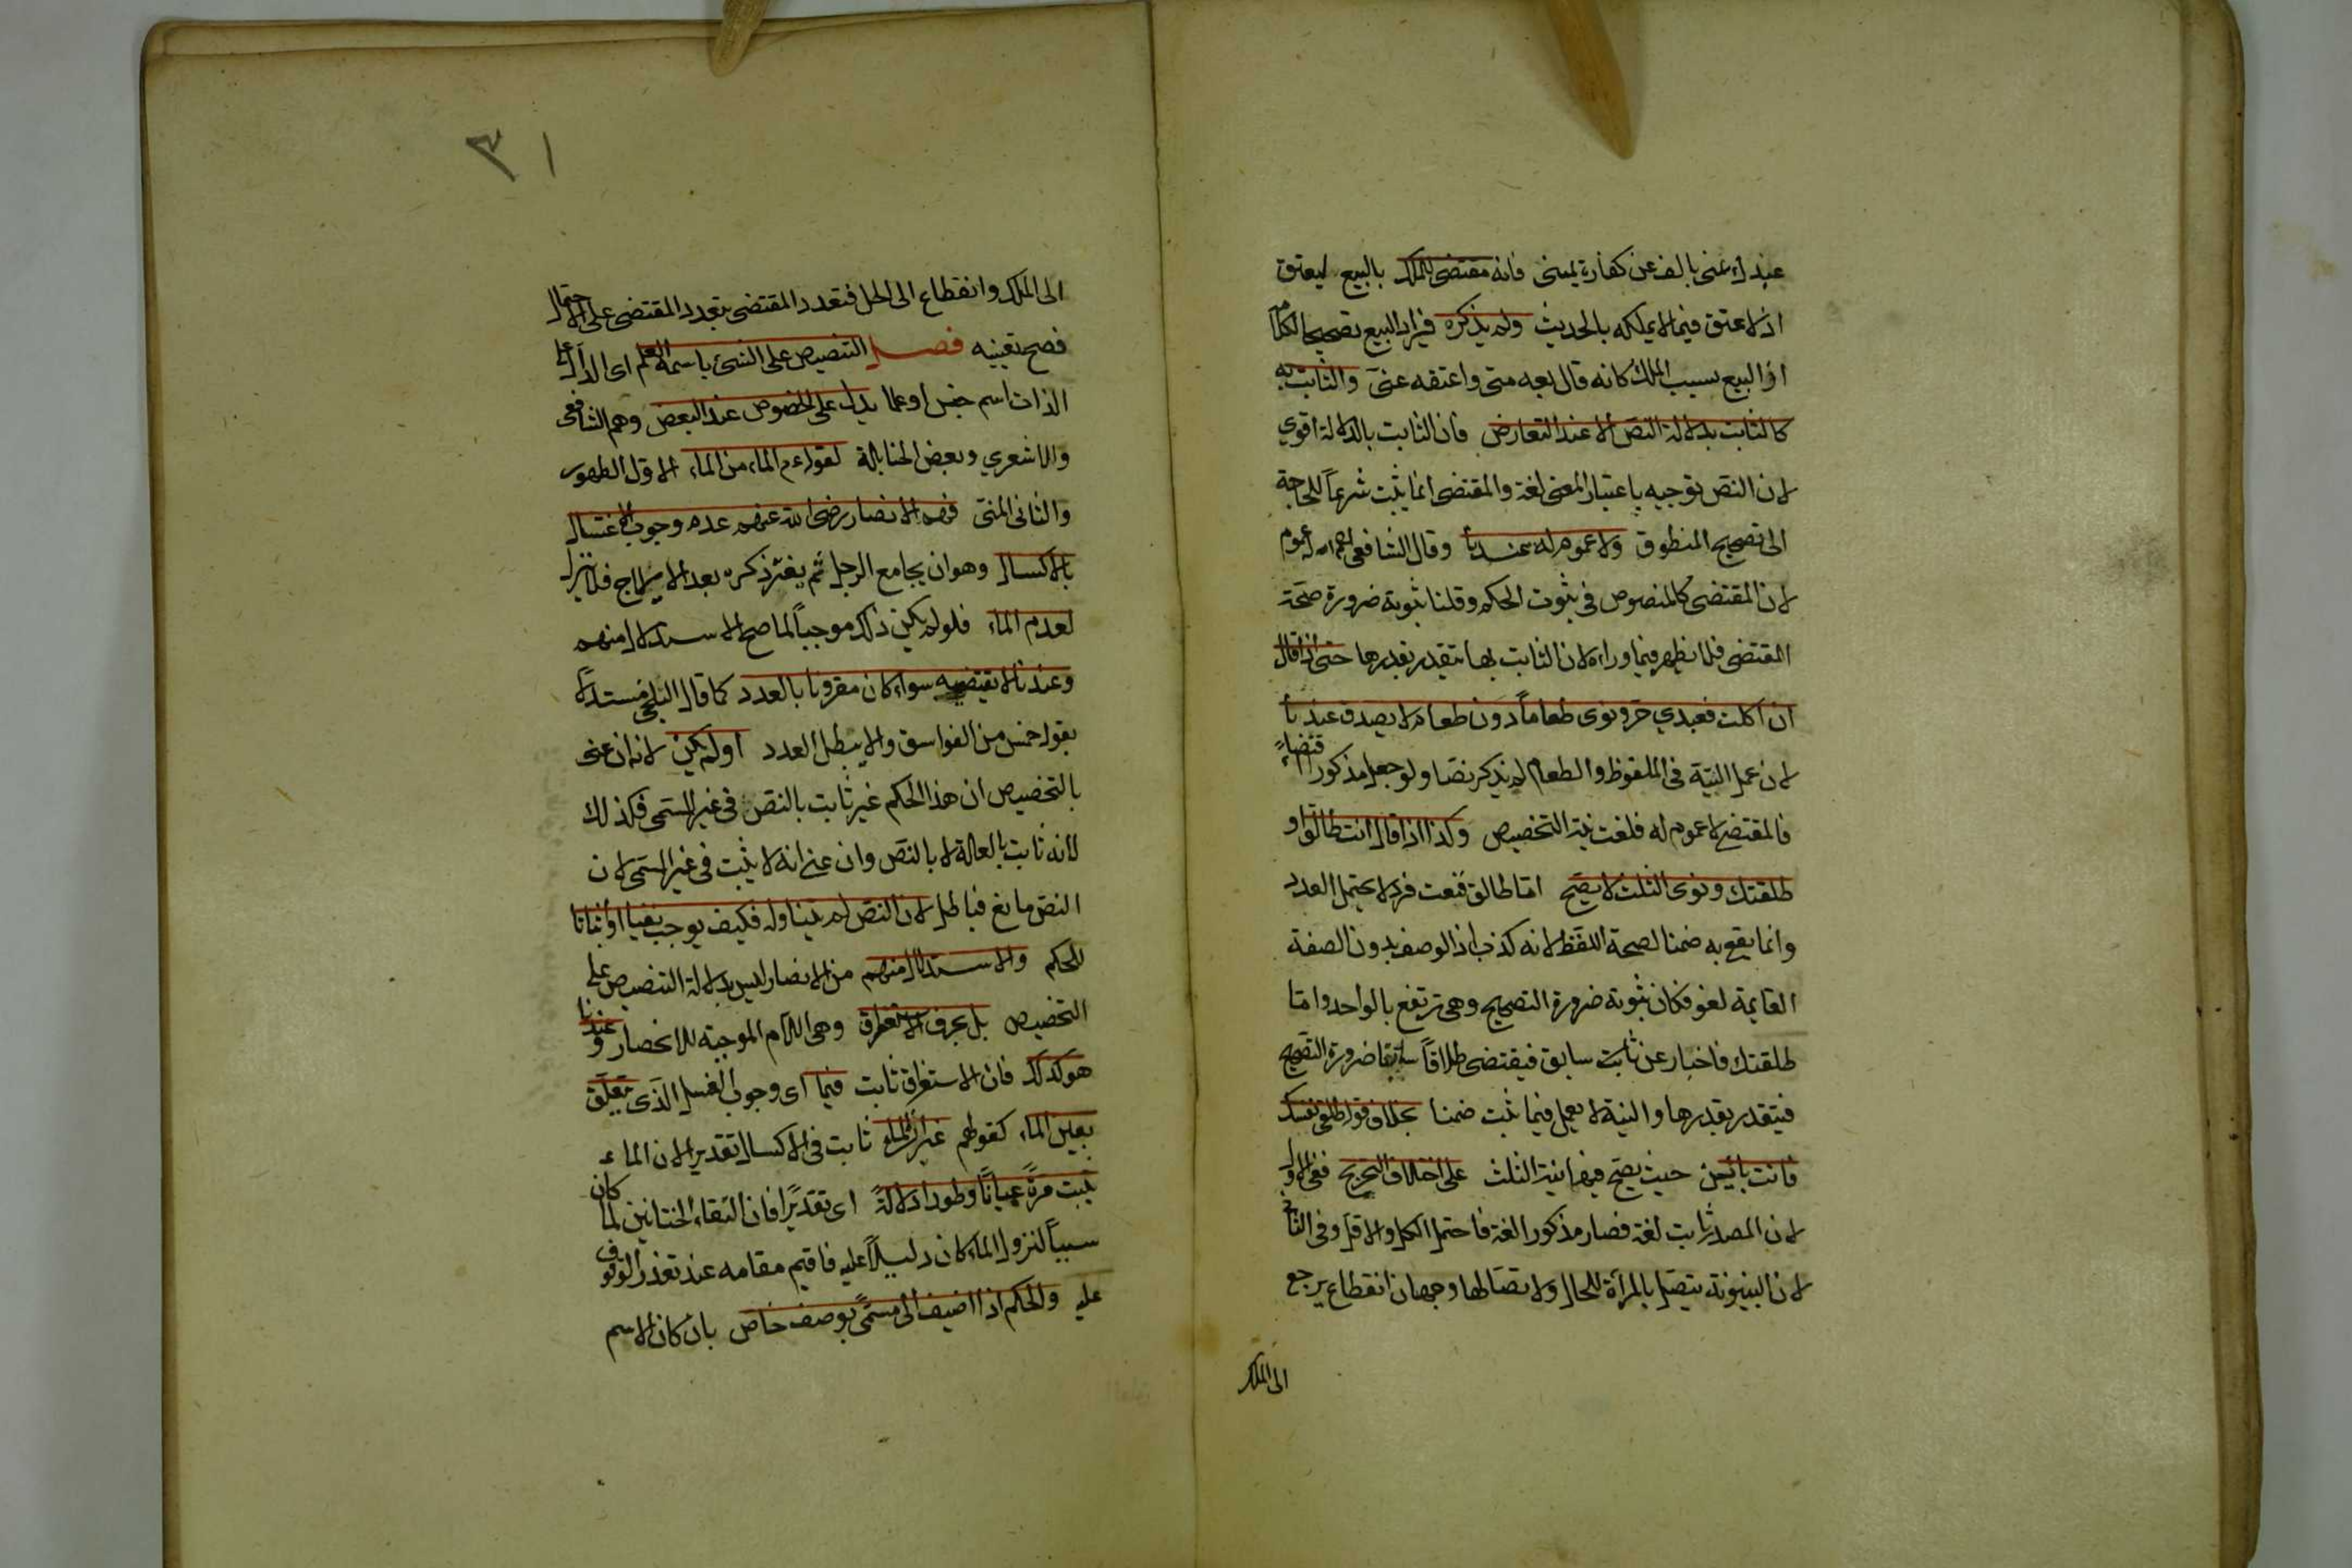 عبدك عني بالف عن كفارة يميني فانه مقتضى للملك بالبيع ليعتق
اذ لا عتق فيما لا يملكه بالحديث ولم يذكره فيزاد البيع تصحيحا للكلام
اذ البيع سبب الملك كانه قال بعه مني واعتقه عني والثابت به
كالثابت بدلالة النص الا عند التعارض فان الثابت بالدلالة اقوي
لان النص توجيه باعتبار المعنى لغة والمقتضى انما يثبت شرعاً للحاجة
الى تصحيح المنطوق ولا عموم له عندنا وقال الشافعي له عموم
لان المقتضى كالمنصوص في ثبوت الحكم وقلنا ثبوته ضرورة صحة
المقتضى فلا يظهر فيما وراءه لان الثابت بها يتقدر بقدرها حتى اذا قال
ان اكلت فعبدي حر ونوى طعاماً دون طعام لا يصدق عندنا
لان عمل النية في الملفوظ والطعام لم يذكر نصا ولو جعل مذكورا اقتضاءً
فالمقتضى لا عموم له فلغت نية التخصيص وكذا اذا قال انت طالق او
طلقتك ونوى الثلث لا يصح اما طالق فنعت فرد لا يحتمل العدد
وانما يقع به ضمنا لصحة اللفظ لانه كذب اذ الوصف بدون الصفة
القايمة لغو فكان ثبوته ضرورة التصحيح وهي ترتفع بالواحد واما
طلقتك فاخبار عن ثابت سابق فيقتضى طلاقاً سابقا ضرورة التصحيح
فيتقدر بقدرها والنية لا يعمل فيما يثبت ضمنا بخلاف قوله طلقي نفسك
فانت بائن حيث يصح فيهما نية الثلث على اختلاف التخريج ففي الاول
لان المصدر ثابت لغة فصار مذكورا لغة فاحتمل الكل والاقل وفي الثاني
لان البينونة يتصل بالمرأة للحال ولاتصالها وجهان انقطاع يرجع
الى الملك
٣١
الى الملك وانقطاع الى الحل فتعدد المقتضى بتعدد المقتضى على الاحتمال
فصح تعيينه فصل التنصيص على الشئ باسمه العلم اى الدال على
الذات اسم جنس او علما يدل على الخصوص عند البعض وهم الشافعي
والاشعري وبعض الحنابلة لقوله عم الماء من الماء الاول الطهور
والثاني المني فهم الانصار رضى الله عنهم عدم وجوب الاغتسال
بالاكسال وهو ان يجامع الرجل ثم يفتر ذكره بعد الايلاج فلا ينزل
لعدم الماء فلو لم يكن ذلك موجباً لما صح الاستدلال منهم
وعندنا لا يقتضيه سواء كان مقرونا بالعدد كما قال البلخي مستدلاً
بقوله خمس من الفواسق والا يبطل العدد او لم يكن لانه ان عنى
بالتخصيص ان هذا الحكم غير ثابت بالنص في غير المسمى فكذلك
لانه ثابت بالعلة لا بالنص وان عني انه لا يثبت في غير المسمى لان
النص مانع فباطل لان النص لم يتناوله فكيف يوجب نفيا او اثباتا
للحكم والاستدلال منهم من الانصار ليس بدلالة التنصيص على
التخصيص بل بحرف الاستغراق وهي اللام الموجبة للانحصار وعندنا
هو كذلك فان الاستغراق ثابت فيما اى وجوب الغسل الذى يتعلق
بعين الماء كقولهم غير ان الماء ثابت في الاكسال تقديرا لان الماء
يثبت مرةً عياناً وطورا دلالةً اى تقديرًا فان التقاء الختانين لما كان
سبباً لنزول الماء كان دليلاً عليه فاقيم مقامه عند تعذر الوقوف
عليه والحكم اذا اضيف الى مسمىً بوصف خاص بان كان الاسم